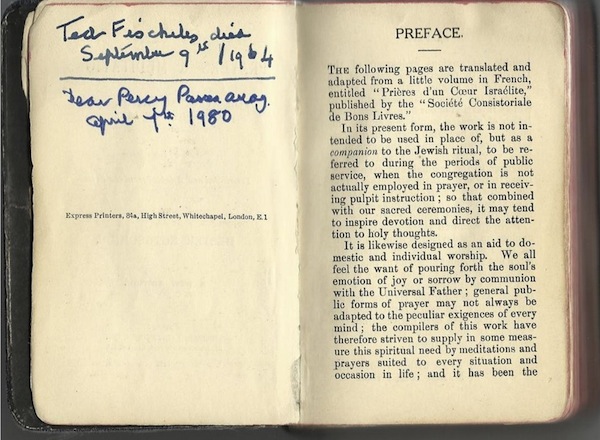 Ted Fischeles died
September 9th / 1964
Dear Percy away.
April 7th 1980
Express Printers, 84a, High Street, Whitechapel, London, E.1
PREFACE.
THE following pages are translated and
adapted from a little volume in French,
entitled “Prières d'un Cœur Israélite,”
published by the “Société Consistoriale
de Bons Livres.”
In its present form, the work is not in-
tended to be used in place of, but as a
companion to the Jewish ritual, to be re-
ferred to during the periods of public
service, when the congregation is not
actually employed in prayer, or in receiv-
ing pulpit instruction; so that combined
with our sacred ceremonies, it may tend
to inspire devotion and direct the atten-
tion to holy thoughts.
It is likewise designed as an aid to do-
mestic and individual worship. We all
feel the want of pouring forth the soul's
emotion of joy or sorrow by communion
with the Universal Father; general pub-
lic forms of prayer may not always be
adapted to the peculiar exigences of every
mind; the compilers of this work have
therefore striven to supply in some meas-
ure this spiritual need by meditations and
prayers suited to every situation and
occasion in life; and it has been the